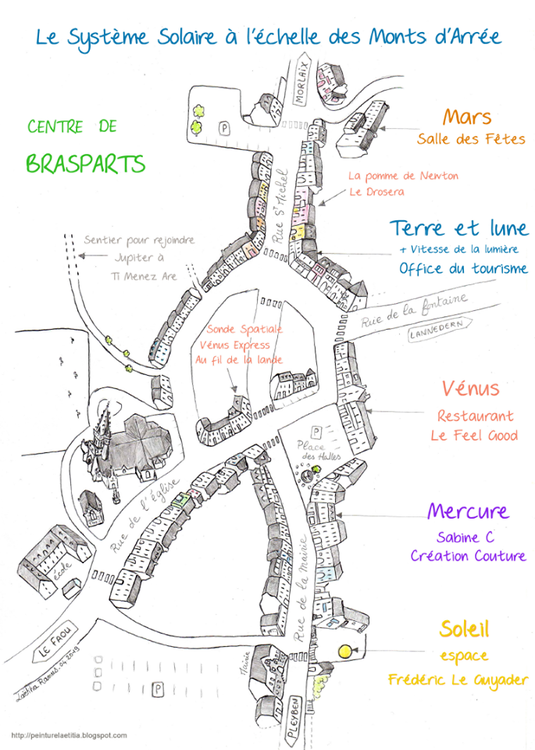 Le Système Solaire à l'échelle des Monts d'Arrée
CENTRE DE
BRASPARTS
MORLAIX
P
Mars
Salle des Fêtes
La pomme de Newton
Le Drosera
Rue St Michel
Terre et lune
+ Vitesse de la lumière
Office du tourisme
Sentier pour rejoindre
Jupiter à
Ti Menez Are
Rue de la fontaine
LANNEDERN
Sonde Spatiale
Vénus Express
Au fil de la lande
Vénus
Restaurant
Le Feel Good
P
Place
des Halles
Rue de l'Église
Mercure
Sabine C
Création Couture
école
Rue de la mairie
LE FAOU
Soleil
espace
Frédéric Le Guyader
Mairie
P
PLEYBEN
http://peinturelaetitia.blogspot.com